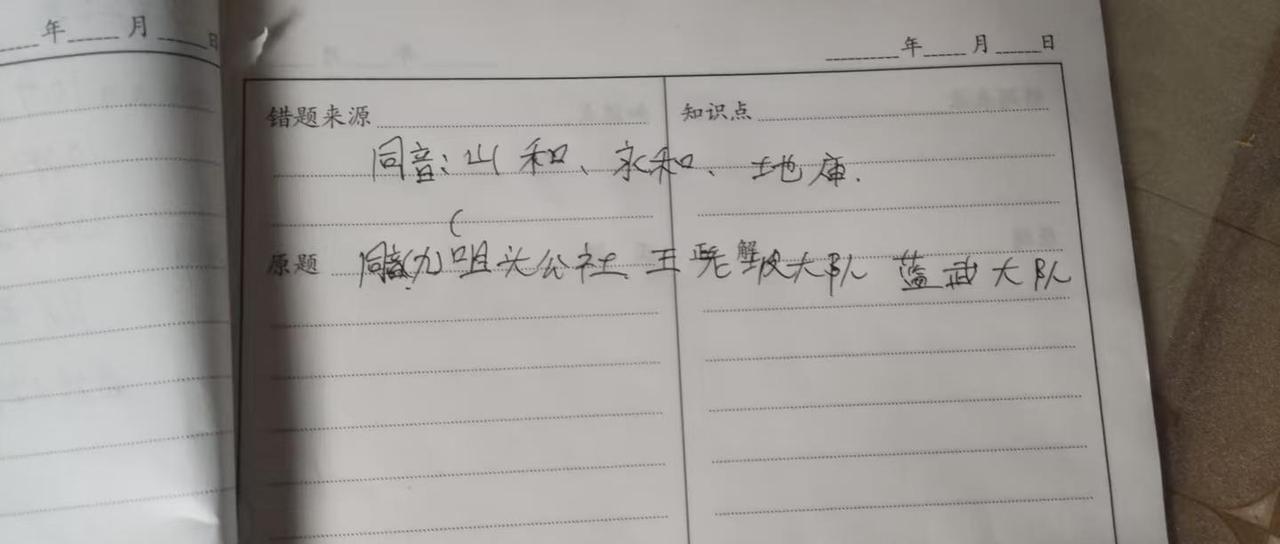 年 月 日
年 月 日
错题来源 知识点
同音:山和、永和、土地庙.
(
原题 同音九咀头公社 王 解放大队 蓝武大队